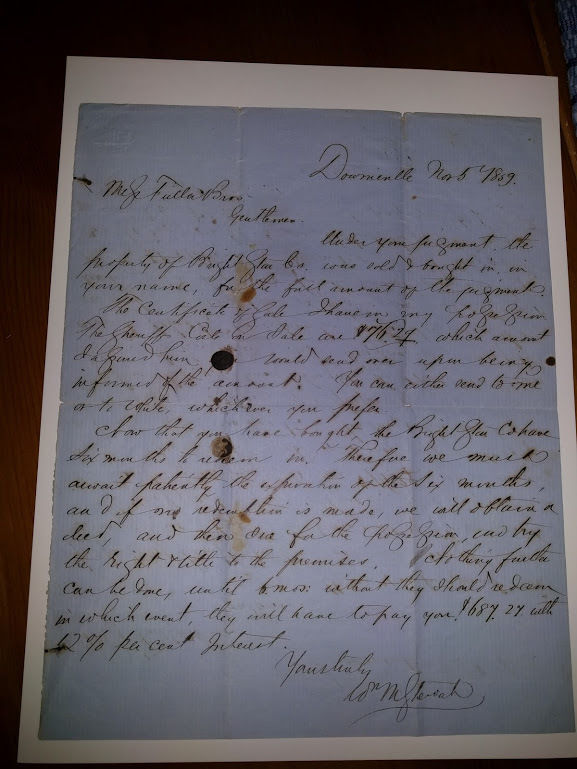 Downieville Nov 5th 1859.
Mess Fuller Bros
Gentlemen.
Under your jugment the
property of Bright Star Co. was sold & bought in in
your name, for the full amount of the jugment.
The Certificate of Sale I have in my possession
The Sheriffs Costs on Sale are $76.27 which amount
I assured him would send over upon being
informed of the amount. You can either send to me
or to White, whichever you prefer.
Now that you have bought the Bright Star Co have
six months to redeem in, Therefore we must
await patiently the expiration of the six months,
and if no redemtion is made, we will obtain a
deed, and then sue for the possession, and try
the right & title to the premises. Nothing further
can be done, until 6 mos: without they should redeem
in which event, they will have to pay you $687.27 with
12 % per cent Interest.
Yours truly
Wm M Stewart